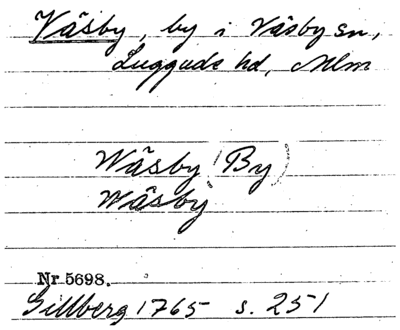 Väsby, by i Väsby sn,
Luggude hd, Mlm
Wäsby (By)
Wäsby
Nr 5698.
Gillberg 1765 s. 251